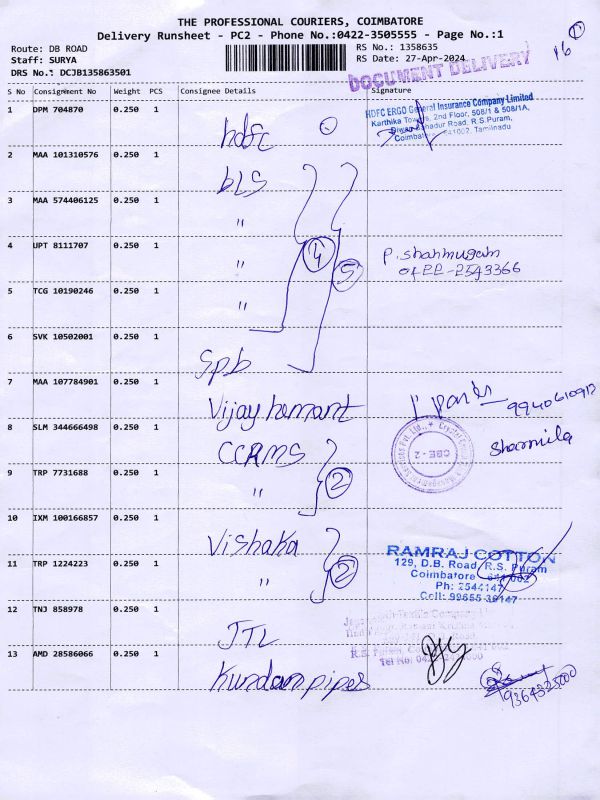 THE PROFESSIONAL COURIERS, COIMBATORE
Delivery Runsheet - PC2 - Phone No.:0422-3505555 - Page No.:1
Route: DB ROAD
RS No.: 1358635
Staff: SURYA
RS Date: 27-Apr-2024
DRS No.: DCJB135863501
DOCUMENT DELIVERY
16
S No Consignment No Weight PCS Consignee Details Signature
1 DPM 704870 0.250 1 hdfc
HDFC ERGO General Insurance Company Limited
Karthika Towers, 2nd Floor, 508/1 & 508/1A,
Diwan Bahadur Road, R.S.Puram,
Coimbatore 641002, Tamilnadu
2 MAA 101310576 0.250 1 bLS
3 MAA 574406125 0.250 1 "
4 UPT 8111707 0.250 1 "
4 5
P. Shanmugam
0422-2543366
5 TCG 10190246 0.250 1 "
6 SVK 10502001 0.250 1 Spb
7 MAA 107784901 0.250 1 Vijay hemant
9940610913
8 SLM 344666498 0.250 1 CCRMS
CBE-2
Sharmila
9 TRP 7731688 0.250 1 " 2
10 IXM 100166857 0.250 1 Vishaka
RAMRAJ COTTON
129, D.B. Road, R.S. Puram
Coimbatore - 641 002
Ph: 2544147
Cell: 99655 39147
11 TRP 1224223 0.250 1 " 2
12 TNJ 858978 0.250 1 JTL
13 AMD 28586066 0.250 1 Kundan pipes
9364325000